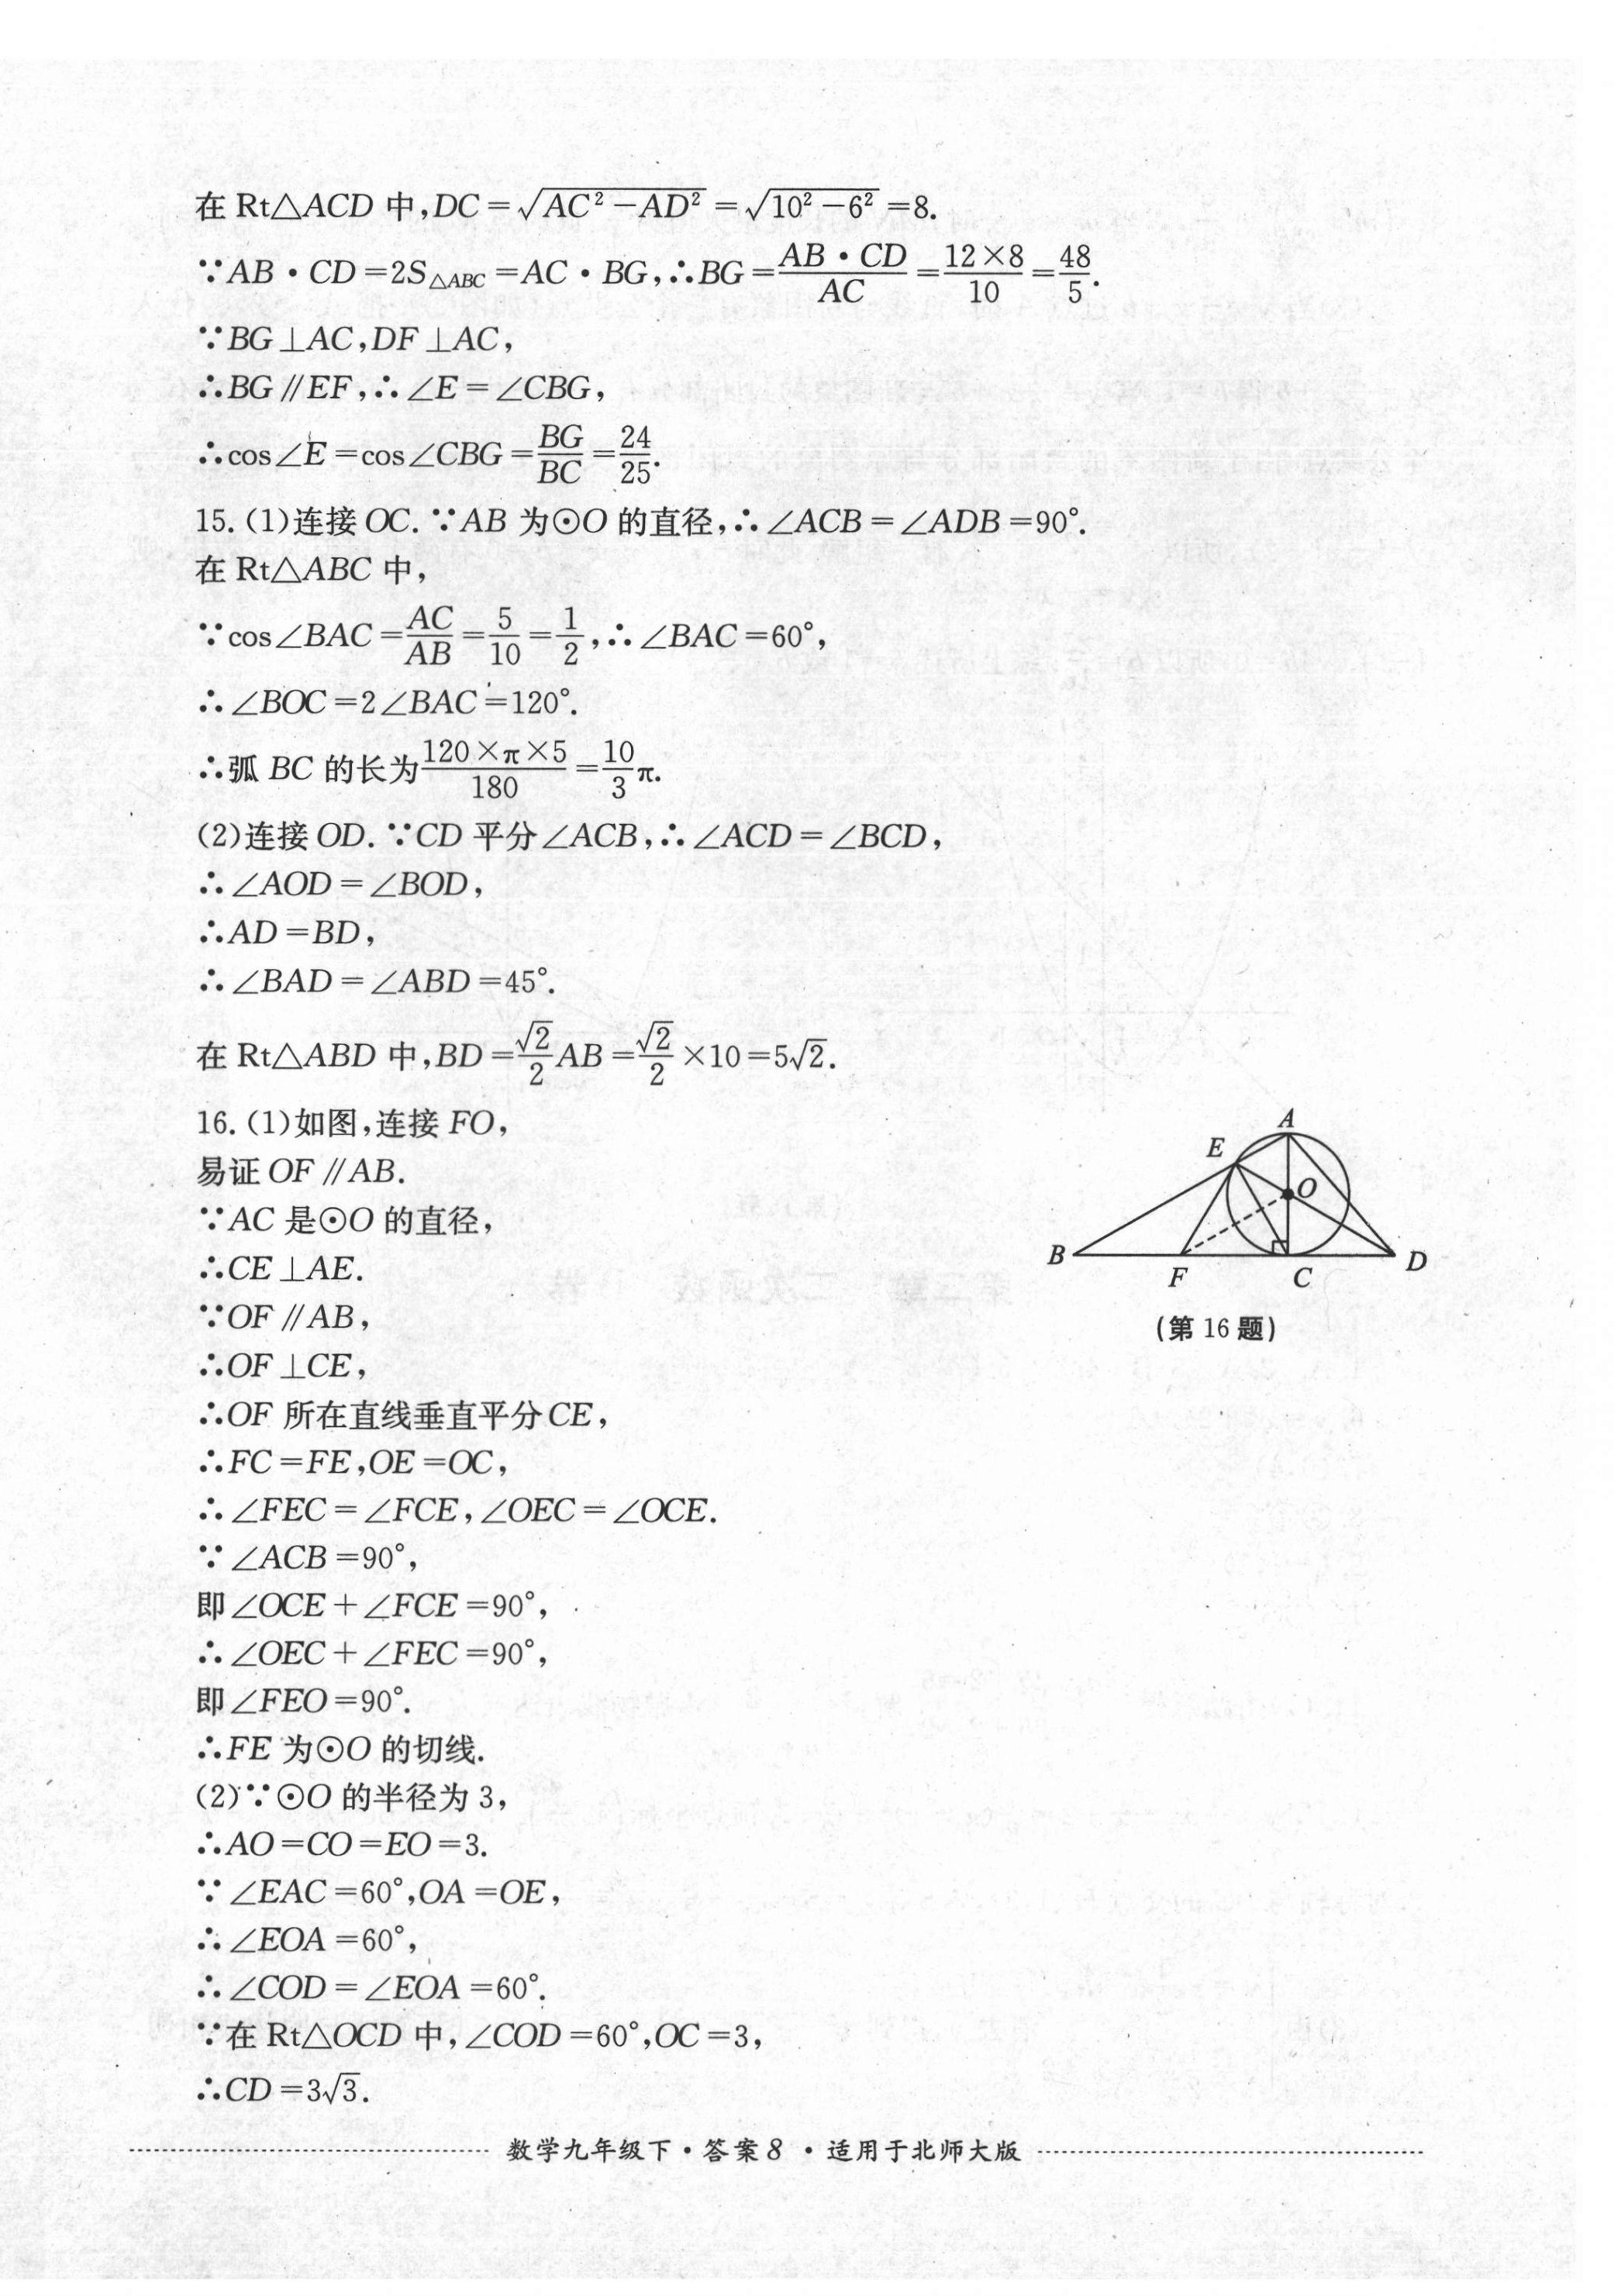 在 Rt△ACD 中,DC=√(AC²−AD²)=√(10²−6²)=8.
∵AB·CD=2S△ABC=AC·BG,∴BG=AB·CD/AC=12×8/10=48/5.
∵BG⊥AC,DF⊥AC,
∴BG∥EF,∴∠E=∠CBG,
∴cos∠E=cos∠CBG=BG/BC=24/25.
15.(1)连接 OC.∵AB 为⊙O 的直径,∴∠ACB=∠ADB=90°.
在 Rt△ABC 中,
∵cos∠BAC=AC/AB=5/10=1/2,∴∠BAC=60°,
∴∠BOC=2∠BAC=120°.
∴弧 BC 的长为120×π×5/180=10/3π.
(2)连接 OD.∵CD 平分∠ACB,∴∠ACD=∠BCD,
∴∠AOD=∠BOD,
∴AD=BD,
∴∠BAD=∠ABD=45°.
在 Rt△ABD 中,BD=√2/2AB=√2/2×10=5√2.
16.(1)如图,连接 FO,
易证 OF∥AB.
∵AC 是⊙O 的直径,
∴CE⊥AE.
∵OF∥AB,
∴OF⊥CE,
∴OF 所在直线垂直平分CE,
∴FC=FE,OE=OC,
∴∠FEC=∠FCE,∠OEC=∠OCE.
∵∠ACB=90°,
即∠OCE+∠FCE=90°,
∴∠OEC+∠FEC=90°,
即∠FEO=90°.
∴FE 为⊙O 的切线.
(2)∵⊙O 的半径为 3,
∴AO=CO=EO=3.
∵∠EAC=60°,OA=OE,
∴∠EOA=60°,
∴∠COD=∠EOA=60°.
∵在 Rt△OCD 中,∠COD=60°,OC=3,
∴CD=3√3.
A
E
O
B
F
C
D
(第 16 题)
数学九年级下·答案8·适用于北师大版